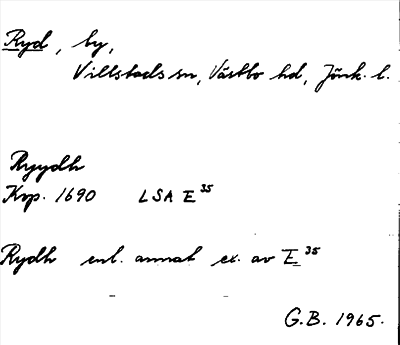 Ryd, by,
Villstads sn, Västbo hd, Jönk. l.
Ryydh
Kop. 1690 LSA E 35
Rydh enl. annat ex. av E 35
G.B. 1965.